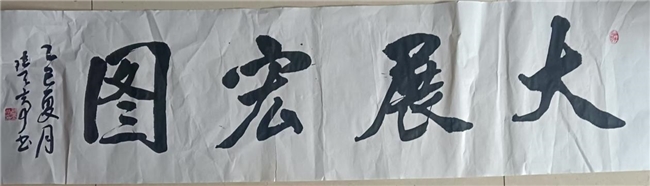 大展宏图
乙巳夏月
书